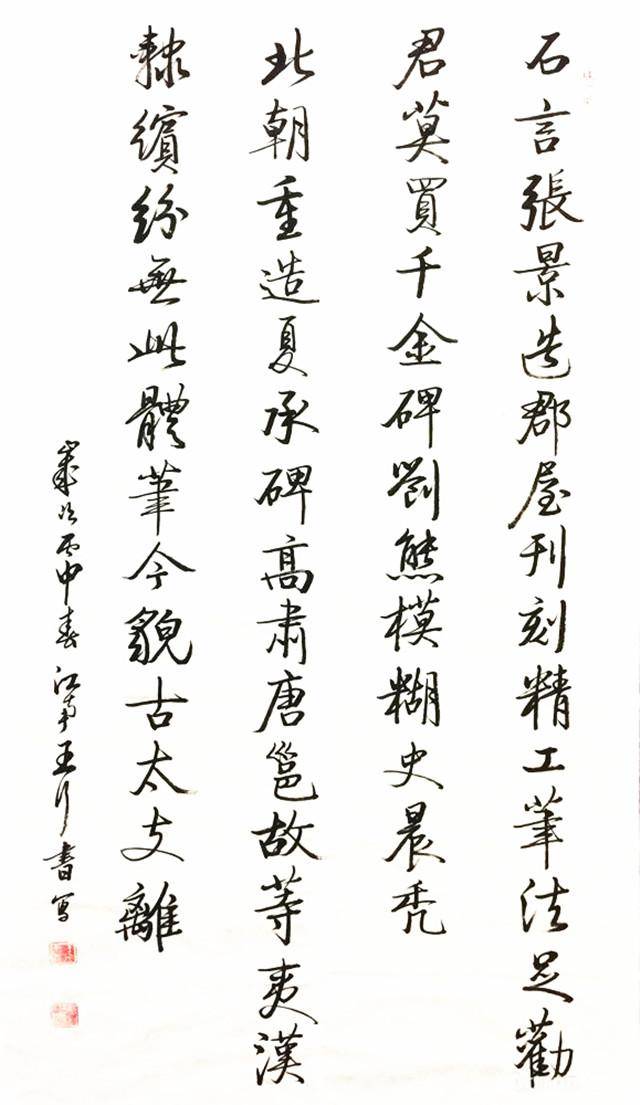 石言張景造郡屋刊刻精工筆法足勸
君莫買千金碑劉熊模糊史晨禿
北朝重造夏承碑高肅唐邕故等夷漢
隸繽紛無此體筆今貌古太支離
歲次丙申春江南王行書寫